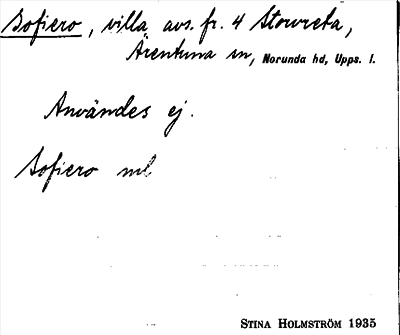 Sofiero, villa, avs. fr. 4 Storvreta,
Ärentuna sn, Norunda hd, Upps. l.
Användes ej.
Sofiero ml
STINA HOLMSTRÖM 1935